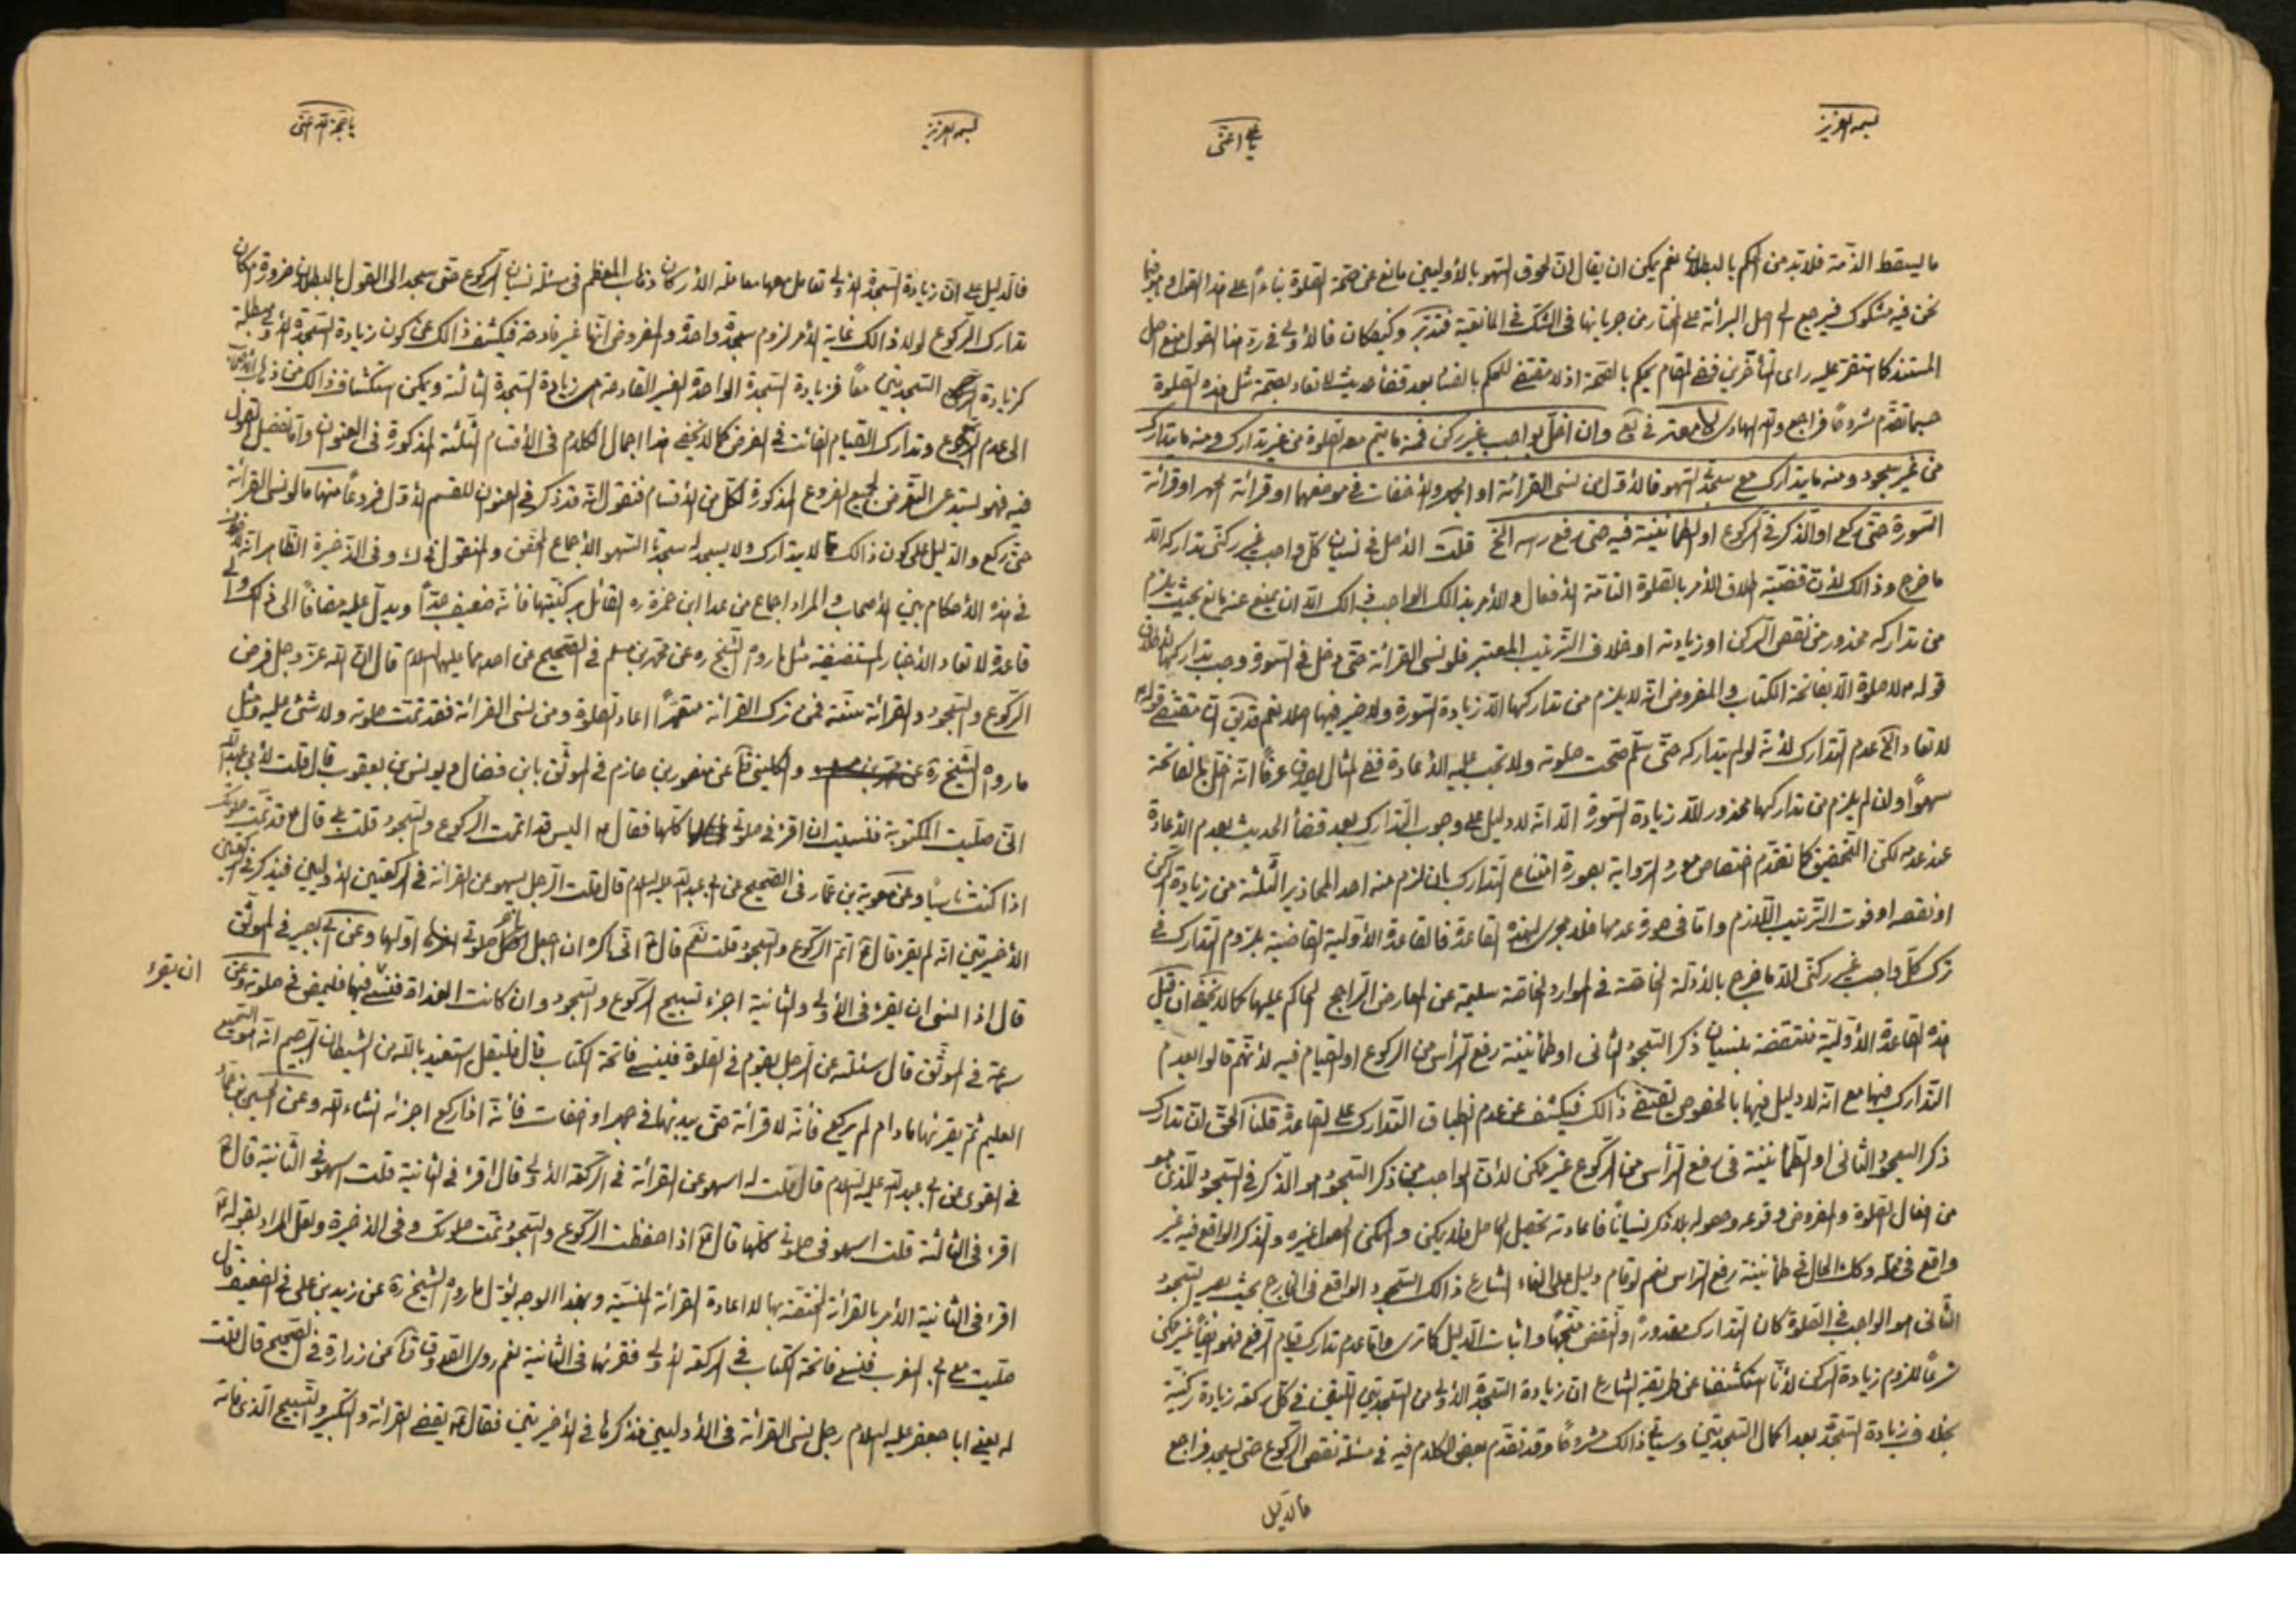 بسمه العزيز
يا علي اغثني
ما يسقط الذمة فلا بد من الحكم بالبطلان نعم يمكن ان يقال ان لحوق السهو بالأوليين مانع عن صحة الصلوة بناءً على هذا القول وهو فيما
نحن فيه مشكوك فيرجع الى اصل البرائة على المختار من جريانها في الشك في المانعية فتدبر وكيفكان فالأولى في رد هذا القول منع اصل
المستند كما استقر عليه راى المتأخرين ففي المقام يحكم بالصحة اذ لا مقتضى للحكم بالفساد بعد قضاء حديث لا تعاد بصحة مثل هذه الصلوة
حسبما تقدم مشروحًا فراجع والله الهادى وان اخل بواجب غير ركن فمنه ما يتم معه الصلوة من غير تدارك ومنه ما يتدارك
من غير سجود ومنه ما يتدارك مع سجدتى السهو فالأول من نسى القرائة او الجهر والأخفات في موضعهما او قرائة الحمد او قرائة
السورة حتى ركع او الذكر في الركوع او الطمانينة فيه حتى رفع رسه الخ قلت الأصل في نسيان كل واجب غير ركنى تداركه الا
ما خرج وذالك لأن قضية اطلاق الأمر بالصلوة التامة الأفعال والأمر بذالك الواجب ذالك الا ان يمنع عنه مانع بحيث يلزم
من تداركه محذور من نقص الركن او زيادته او خلاف الترتيب المعتبر فلو نسى القرائة حتى دخل في السورة وجب تداركها لأطلاق
قوله لا صلوة الا بفاتحة الكتاب والمفروض انه لا يلزم من تداركها الا زيادة السورة ولا ضير فيها اصلا نعم قد يق ان مقتضى قوله
لا تعاد الخ عدم التدارك لأنه لو لم يتداركه حتى سلم صحت صلوته ولا تجب عليه الأعادة ففي المثال يصدق عرفًا انه اخل بالفاتحة
سهوًا وان لم يلزم من تداركها محذور الا زيادة السورة الا انه لا دليل على وجوب التدارك بعد قضاء الحديث بعدم الأعادة
عند عدمه لكن التحقيق كما تقدم اختصاص مورد الرواية بصورة امتناع التدارك بان لزم منه احد المحاذير الثلثة من زيادة الركن
او نقصه او فوت الترتيب اللازم واما في صورة عدمها فلا مجرى لهذه القاعدة فالقاعدة الأولية القاضية بلزوم التدارك في
ترك كل واجب غير ركنى الا ما خرج بالأدلة الخاصة في الموارد الخاصة سليمة عن المعارض الراجح الحاكم عليها كما لا يخفى ان قيل
هذه القاعدة الأولية منتقضة بنسيان ذكر السجود الثانى او طمأنينة رفع الرأس من الركوع او القيام فيه لأنهم قالوا بعدم
التدارك فيها مع انه لا دليل فيها بالخصوص يقتضى ذالك فيكشف عن عدم انطباق التدارك على القاعدة قلنا الحق ان تدارك
ذكر السجود الثانى او الطمأنينة في رفع الرأس من الركوع غير ممكن لأن الواجب من ذكر السجود هو الذكر في السجود الذى هو
من افعال الصلوة والمفروض وقوعه وحصوله بلا ذكر نسيانًا فاعادته تحصيل الحاصل فلا يمكن والممكن انما هو غيره والذكر الواقع فيه غير
واقع في محله وكك الحال في طمأنينة رفع الراس نعم لو قام دليل على الغاء الشارع ذالك السجود الواقع في الخارج بحيث يصير السجود
الثانى هو الواجب في الصلوة كان التدارك مقدورًا والنقض متجهًا واثبات الدليل كما ترى واما عدم تدارك قيام الرفع فهو ايضًا غير ممكن
شرعًا للزوم زيادة الركن لأنا استكشفنا عن طريقة الشارع ان زيادة السجدة الأولى من السجدتين اللتين في كل ركعة زيادة ركنية
بخلاف زيادة السجدة بعد اكمال السجدتين وسيأتى ذالك مشروحًا وقد تقدم بعض الكلام فيه في مسئلة نقص الركوع حتى سجد فراجع
فالدليل
بسمه العزيز
يا حجة الله اغثنى
فالدليل على ان زيادة السجدة الأولى تعامل معها معاملة الأركان ذهاب المعظم في مسئلة نسيان الركوع حتى سجد الى القول بالبطلان ضرورة امكان
تدارك الركوع لولا ذالك غاية الأمر لزوم سجدة واحدة والمفروض انها غير قادحة فيكشف ذالك عن كون زيادة السجدة الأولى مبطلة
كزيادة السجدتين معًا فزيادة السجدة الواحدة الغير القادحة هى زيادة السجدة الثالثة ويمكن استكشاف ذالك من ذهاب
الى عدم الرجوع وتدارك القيام الفائت في الفرض كما لا يخفى هذا اجمال الكلام في الأقسام الثلثة المذكورة في العنوان واما تفصيل القول
فيه فهو يستدعى التعرض لجميع الفروع المذكورة لكل من الأقسام فنقول انه قد ذكر في العنوان للقسم الأول فروعًا منها ما لو نسى القرائة
حتى ركع والدليل على كون ذالك مما لا يتدارك ولا يسجد له سجدتا السهو الأجماع المحقق والمنقول وفى الذخيرة الظاهر انه لا خلاف
في هذه الأحكام بين الأصحاب والمراد اجماع من عدا ابن حمزة ره القائل بركنيتها فأنه ضعيف جدًا ويدل عليه مضافًا الى ذالك والى
قاعدة لا تعاد الأخبار المستفيضة مثل ما رواه الشيخ ره عن محمد بن مسلم في الصحيح عن احدهما عليهما السلام قال ان الله عز وجل فرض
الركوع والسجود والقرائة سنة فمن ترك القرائة متعمدًا اعاد الصلوة ومن نسى القرائة فقد تمت صلوته ولا شئ عليه ومثل
ما رواه الشيخ ره والكلينى عن منصور بن حازم في الموثق بابن فضال ويونس بن يعقوب قال قلت لأبى عبد الله
انى صليت المكتوبة فنسيت ان اقرء في صلوتى كلها فقال اليس قد اتممت الركوع والسجود قلت بلى قال قد تمت صلوتك
اذا كنت ناسيًا وعن معوية بن عمار في الصحيح عن ابى عبد الله عليه السلام قال قلت الرجل يسهو عن القرائة في الركعتين الأوليين فيذكر في الركعتين
الأخيرتين انه لم يقرء قال اتم الركوع والسجود قلت نعم قال انى اكره ان اجعل اخر صلوتى اولها وعن ابى بصير في الموثق
ان يقرء
قال اذا نسى ان يقرء في الأولى والثانية اجزء تسبيح الركوع والسجود وان كانت الغداة فنسى فيها فليمض في صلوته وعن
سماعة في الموثق قال سئلته عن الرجل يقوم في الصلوة فينسى فاتحة الكتاب قال فليقل استعيذ بالله من الشيطان الرجيم انه هو السميع
العليم ثم يقرئها مادام لم يركع فأنه لا قرائة حتى يبدء بها في جهر او اخفات فأنه اذا ركع اجزئه انشاء الله وعن الحسين بن حماد
في القوى عن ابى عبد الله عليه السلام قال قلت له اسهو عن القرائة في الركعة الأولى قال اقرء في الثانية قلت اسهو في الثانية قال
اقرء في الثالثة قلت اسهو في صلوتى كلها قال اذا حفظت الركوع والسجود تمت صلوتك وفى الذخيرة ولعل المراد بقوله
اقرء في الثانية الأمر بالقرائة المختصة بها لا اعادة القرائة المنسية وبهذا الوجه يؤل ما رواه الشيخ ره عن زيد بن على في الضعيف قال
صليت مع ابى المغرب فنسى فاتحة الكتاب في الركعة الأولى فقرئها في الثانية نعم روى الصدوق عن زرارة في الصحيح قال قلت
له يعنى ابا جعفر عليه السلام رجل نسى القرائة في الأوليين فذكرها في الأخيرتين فقال يقضى القرائة والتكبير والتسبيح الذى فاته